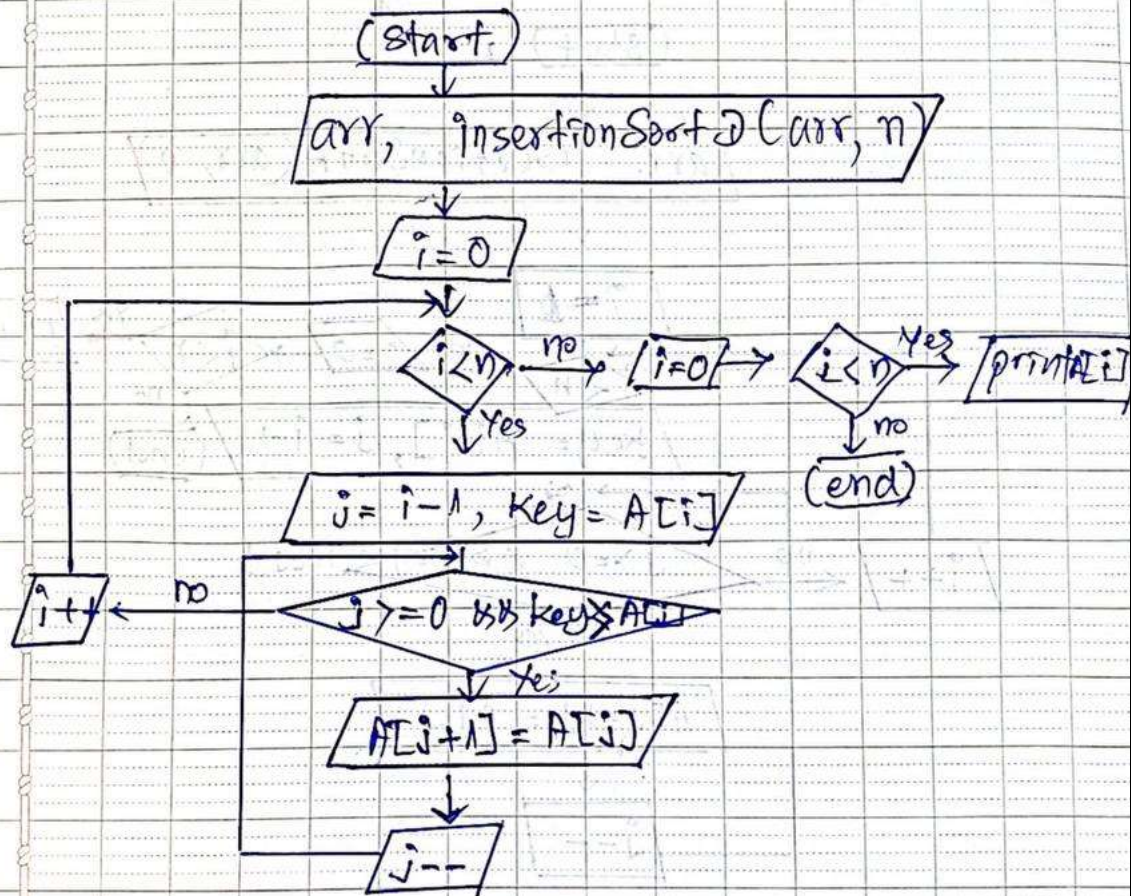 (start)
arr, insertionSortD(arr, n)
i = 0
i < n
no
i=0
i < n
Yes
print A[i]
Yes
no
(end)
j = i-1, Key = A[i]
i++
no
j >= 0 && key > A[j]
Yes
A[j+1] = A[j]
j--